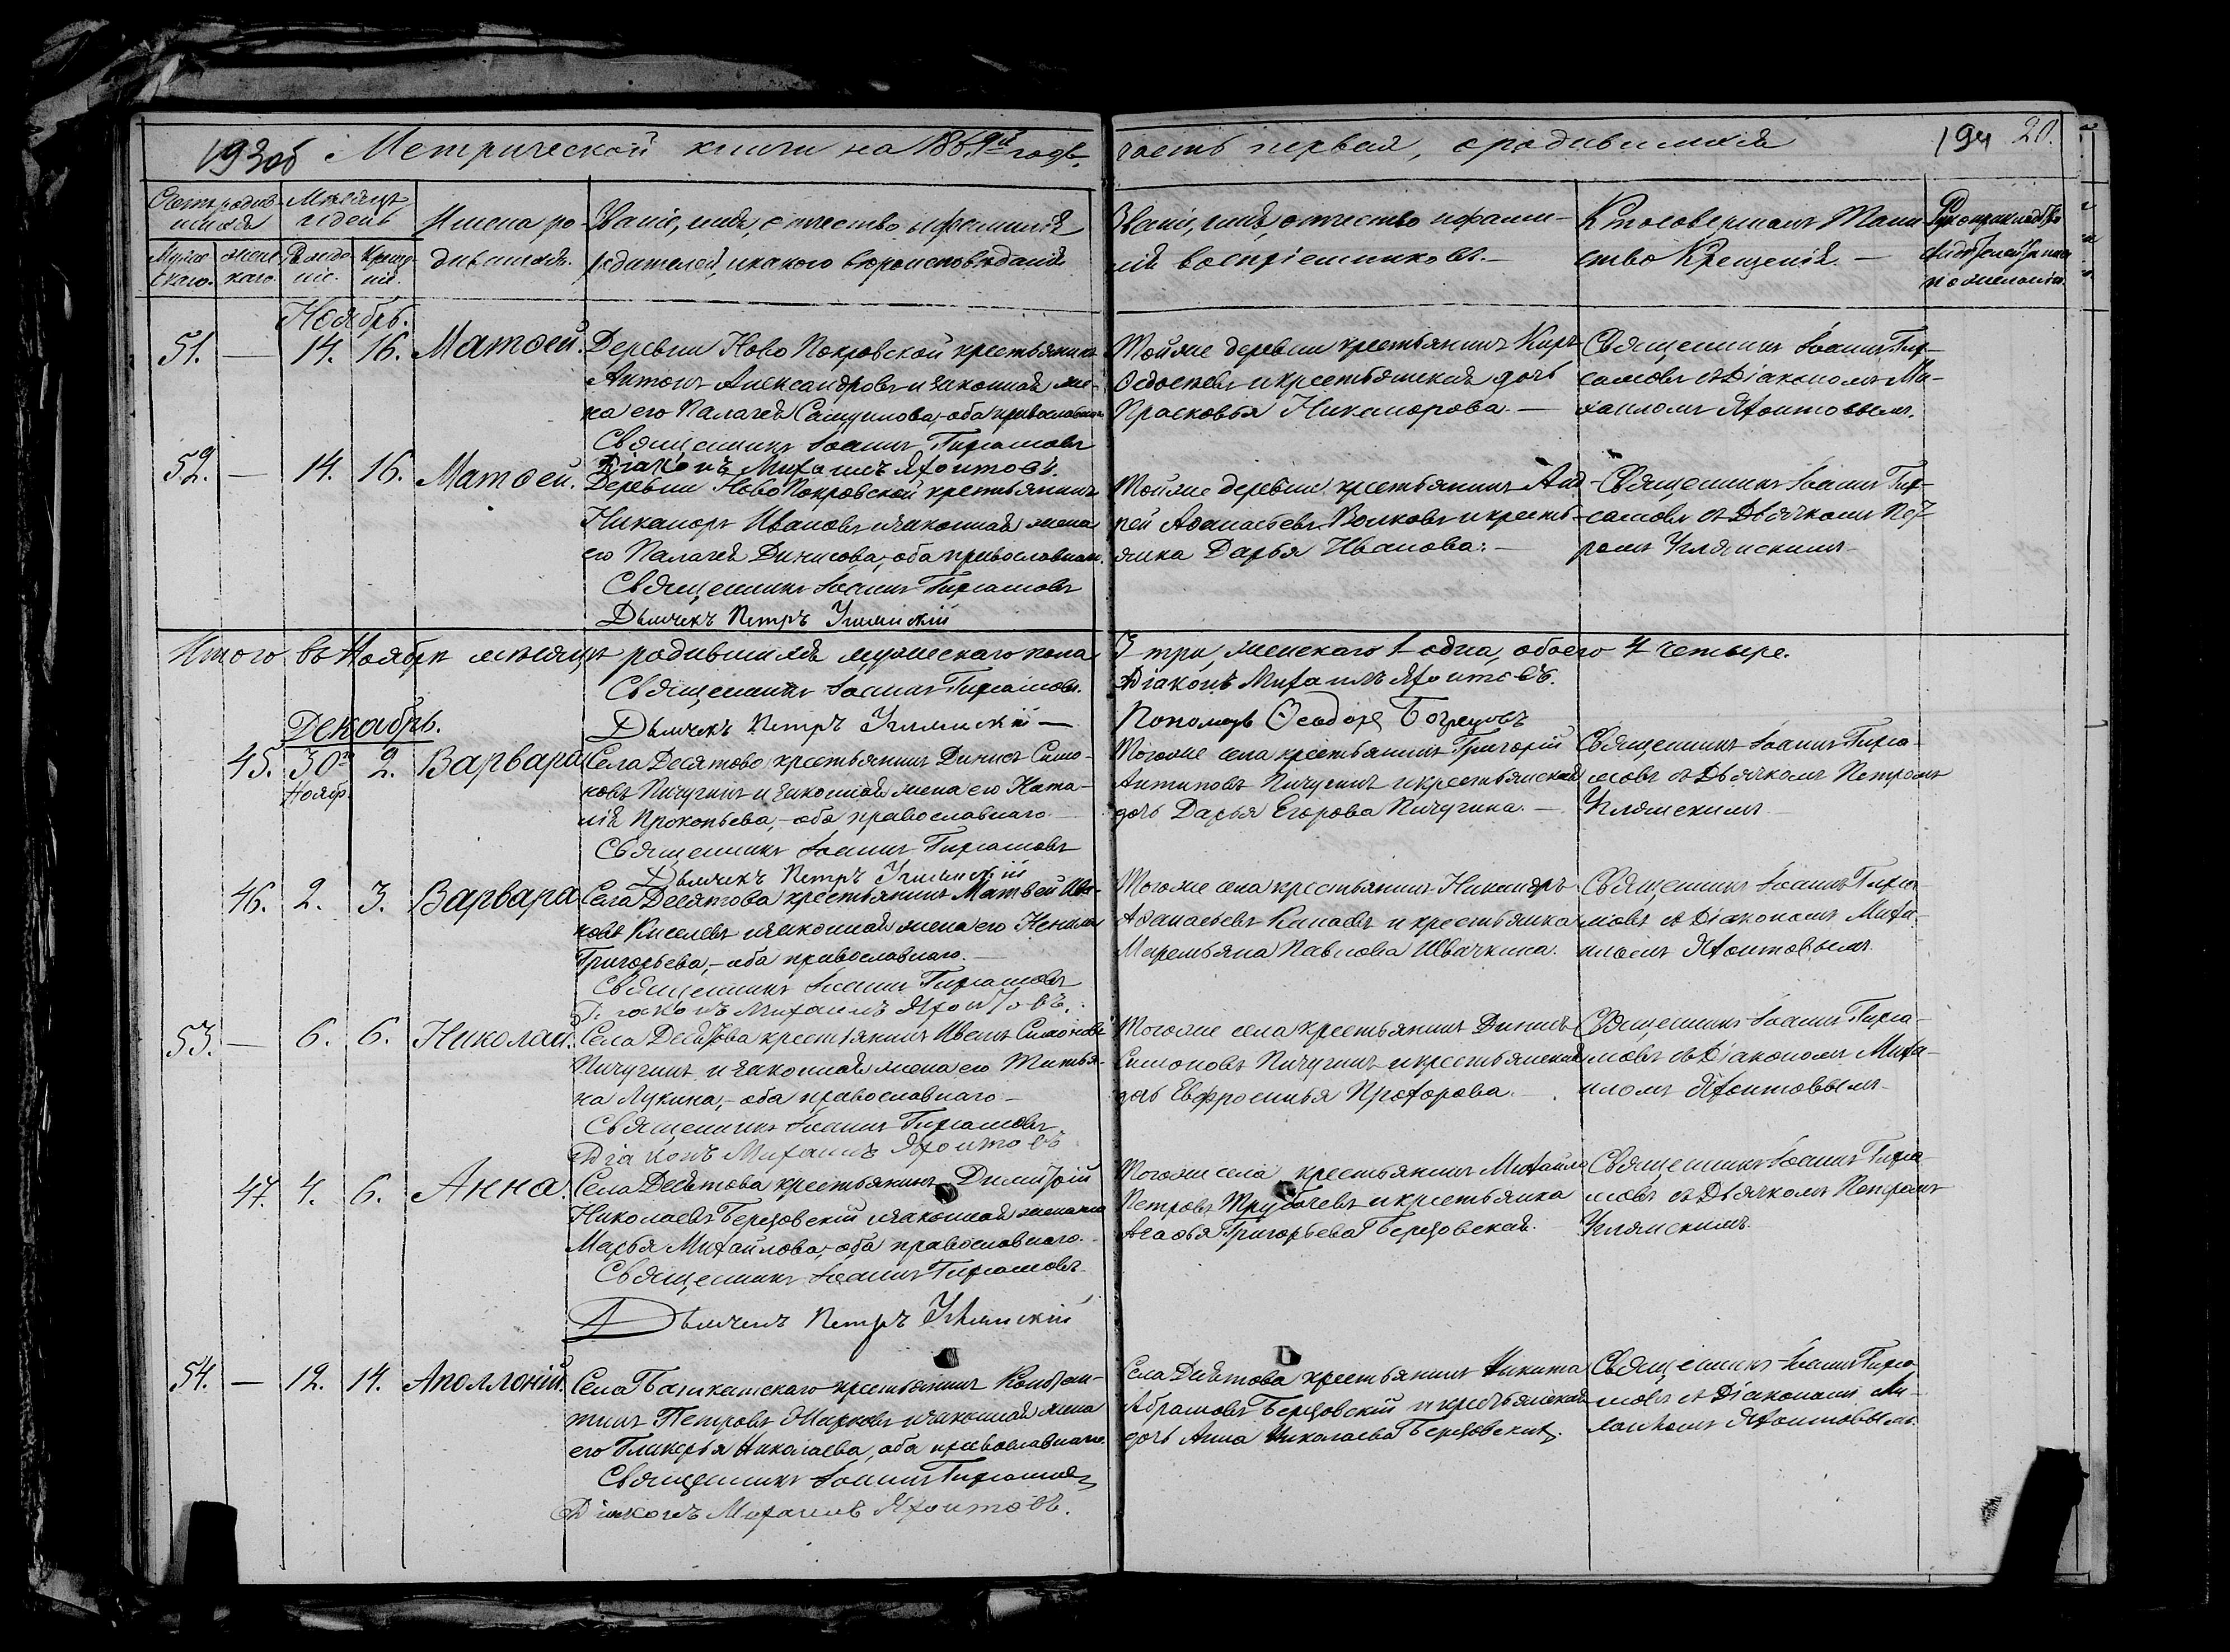 193об Метрической книги на 1869й годъ,
часть первая, о родившихся
194 20.
Счетъ родив-
шихся
Мѣсяцъ
и день
Имена ро-
дившихся.
Званіе, имя, отчество и фамилія
родителей, и какого вѣроисповѣданія
Муже-
скаго.
женс-
каго.
Рожде-
ніе.
Креще-
ніе.
Званіе, имя, отчество и фами-
лія воспріемниковъ.—
Кто совершалъ Таин-
ство Крещенія.—
Ноябрь.
51. — 14. 16. Матѳей.
Деревни Ново Покровской крестьянинъ
Антонъ Александровъ и законная же-
на его Палагея Самуилова, оба православнаго
Священникъ Іоаннъ
Діаконъ Михаилъ Яхонтовъ.
Тойже деревни крестьянинъ Киръ
и крестьянская дочь
Прасковья Никанорова.—
Священникъ Іоаннъ
съ Діакономъ Ми-
хаиломъ Яхонтовымъ.
52. — 14. 16. Матѳей.
Деревни Ново Покровской крестьянинъ
Никаноръ Ивановъ и законная жена
его Палагея Динисова, оба православнаго.
Священникъ Іоаннъ
Дьячекъ Петръ Углянскій
Тойже деревни крестьянинъ Анд-
рей Аѳанасьевъ Волковъ и кресть-
янка Дарья Иванова.—
Священникъ Іоаннъ
съ Дьячкомъ Пет-
ромъ Углянскимъ
Итого въ Ноябрѣ мѣсяцѣ родившихся мужескаго пола
3 три, женскаго 1 одна, обоего 4 четыре.
Священникъ Іоаннъ
Діаконъ Михаилъ Яхонтовъ.
Дьячекъ Петръ Углянскій —
Пономарь Ѳеодоръ
Декабрь.
45. 30го 2. Варвара
Ноябр.
Села Десятово крестьянинъ Динисъ Симо-
новъ Пичугинъ и законная жена его Ната-
лія Прокопьева,— оба православнаго.
Священникъ Іоаннъ
Дьячекъ Петръ Углянскій
Тогоже села крестьянинъ Григорій
Антиповъ Пичугинъ и крестьянская
дочь Дарья Егорова Пичугина.—
Священникъ Іоаннъ
съ Дьячкомъ Петромъ
Углянскимъ
46. 2. 3. Варвара
Села Десятова крестьянинъ Матвей Ива-
новъ Киселевъ и законная жена его Ненила
Григорьева,— оба православнаго.
Священникъ Іоаннъ
Діаконъ Михаилъ Яхонтовъ.
Тогоже села крестьянинъ Никандръ
Аѳанасьевъ и крестьянка
Маремьяна Павлова
Священникъ Іоаннъ
съ Діакономъ Миха-
иломъ Яхонтовымъ.
53. — 6. 6. Николай.
Села Десятова крестьянинъ Иванъ Симоновъ
Пичугинъ и законная жена его Татья-
на Лукина,— оба православнаго.—
Священникъ Іоаннъ
Діаконъ Михаилъ Яхонтовъ
Тогоже села крестьянинъ Динисъ
Симоновъ Пичугинъ и крестьянская
дочь Евфросинья Прохорова.—
Священникъ Іоаннъ
съ Діакономъ Миха-
иломъ Яхонтовымъ.
47. 4. 6. Анна.
Села Десятова крестьянинъ Димитрій
Николаевъ Березовскій и законная жена его
Марья Михайлова,— оба православнаго.
Священникъ Іоаннъ
Дьячекъ Петръ Углянскій
Тогоже села крестьянинъ Михайло
Петровъ Трубачевъ и крестьянка
Агаѳья Григорьева Березовская.
Священникъ Іоаннъ
съ Дьячкомъ Петромъ
Углянскимъ.
54. — 12. 14. Аполлоній.
Села крестьянинъ Констан-
тинъ Петровъ и законная жена
его Гликерья Николаева, оба православнаго.
Священникъ Іоаннъ
Діаконъ Михаилъ Яхонтовъ.
Села Десятова крестьянинъ Никита
Абрамовъ Березовскій и крестьянская
дочь Анна Николаева Березовская.
Священникъ Іоаннъ
съ Діакономъ Ми-
хаиломъ Яхонтовымъ.